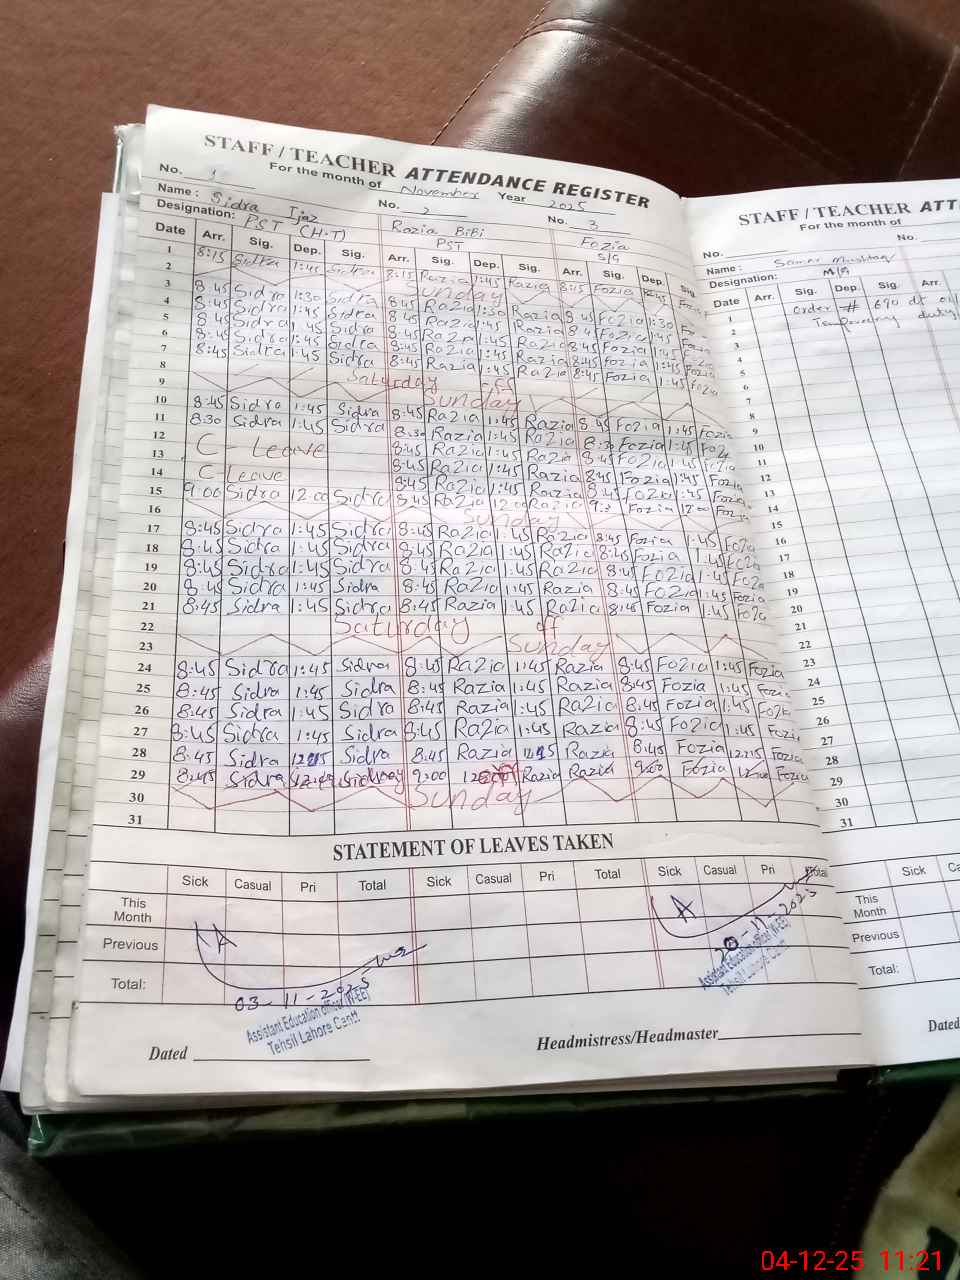 STAFF / TEACHER ATTENDANCE REGISTER
For the month of November Year 2025
No. 1 No. 2 No. 3
Name : Sidra Ijaz Razia BiBi Fozia
Designation: PST (H-T) PST S/G
Date Arr. Sig. Dep. Sig. Arr. Sig. Dep. Sig. Arr. Sig. Dep. Sig.
1 8:15 Sidra 1:45 Sidra 8:15 Razia 1:45 Razia 8:15 Fozia
2 Sunday
3 8:45 Sidra 1:30 Sidra 8:45 Razia 1:30 Razia 8:45 Fozia 1:30
4 8:45 Sidra 1:45 Sidra 8:45 Razia 1:45 Razia 8:45 Fozia 1:45
5 8:45 Sidra 1:45 Sidra 8:45 Razia 1:45 Razia 8:45 Fozia 1:45
6 8:45 Sidra 1:45 Sidra 8:45 Razia 1:45 Razia 8:45 Fozia 1:45 Fozia
7 8:45 Sidra 1:45 Sidra 8:45 Razia 1:45 Razia 8:45 Fozia 1:45 Fozia
8 Saturday off
9 Sunday
10 8:45 Sidra 1:45 Sidra 8:45 Razia 1:45 Razia 8:45 Fozia 1:45 Fozia
11 8:30 Sidra 1:45 Sidra 8:30 Razia 1:45 Razia 8:30 Fozia 1:45 Fozia
12 C - Leave 8:45 Razia 1:45 Razia 8:45 Fozia 1:45 Fozia
13 8:45 Razia 1:45 Razia 8:45 Fozia 1:45 Fozia
14 C - Leave 8:45 Razia 1:45 Razia 8:45 Fozia 1:45 Fozia
15 9:00 Sidra 12:00 Sidra 8:45 Razia 12:00 Razia Fozia 12:00 Fozia
16 Sunday
17 8:45 Sidra 1:45 Sidra 8:45 Razia 1:45 Razia 8:45 Fozia 1:45 Fozia
18 8:45 Sidra 1:45 Sidra 8:45 Razia 1:45 Razia 8:45 Fozia 1:45 Fozia
19 8:45 Sidra 1:45 Sidra 8:45 Razia 1:45 Razia 8:45 Fozia 1:45 Fozia
20 8:45 Sidra 1:45 Sidra 8:45 Razia 1:45 Razia 8:45 Fozia 1:45 Fozia
21 8:45 Sidra 1:45 Sidra 8:45 Razia 1:45 Razia 8:45 Fozia 1:45 Fozia
22 Saturday off
23 Sunday
24 8:45 Sidra 1:45 Sidra 8:45 Razia 1:45 Razia 8:45 Fozia 1:45 Fozia
25 8:45 Sidra 1:45 Sidra 8:45 Razia 1:45 Razia 8:45 Fozia 1:45 Fozia
26 8:45 Sidra 1:45 Sidra 8:45 Razia 1:45 Razia 8:45 Fozia 1:45 Fozia
27 8:45 Sidra 1:45 Sidra 8:45 Razia 1:45 Razia 8:45 Fozia 1:45 Fozia
28 8:45 Sidra 12:15 Sidra 8:45 Razia 12:15 Razia 8:45 Fozia 12:15 Fozia
29 8:45 Sidra 9:00 Razia Razia 9:00 Fozia 12:00 Fozia
30 Sunday
31
STATEMENT OF LEAVES TAKEN
Sick Casual Pri Total Sick Casual Pri Total Sick Casual Pri Total
This Month
Previous
Total:
03-11-2025
Assistant Education officer (W-EE)
Tehsil Lahore Cantt
20-11-2025
Assistant Education officer (W-EE)
Tehsil Lahore Cantt
Dated
Headmistress/Headmaster
STAFF / TEACHER
For the month of
No. No.
Name :
Designation: M/G
Date Arr. Sig. Dep. Sig. Arr. Sig.
1 order # 690 dt
2 Temporary duty
3
4
5
6
7
8
9
10
11
12
13
14
15
16
17
18
19
20
21
22
23
24
25
26
27
28
29
30
31
Sick
This Month
Previous
Total:
Dated
04-12-25 11:21